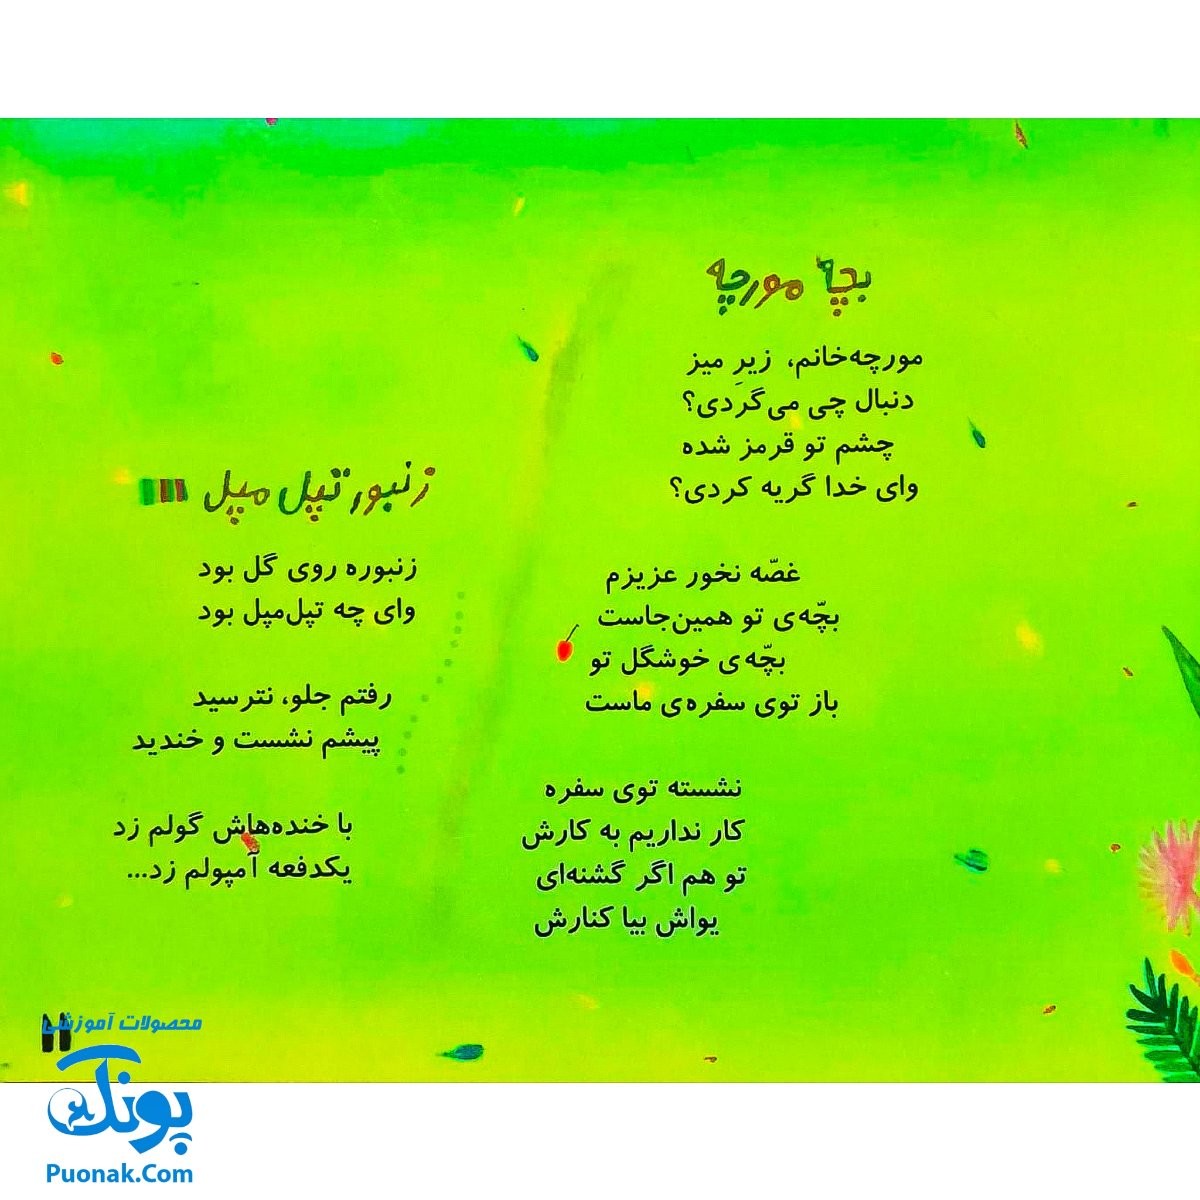 بچه مورچه
مورچه‌خانم، زیرِ میز
دنبال چی می‌گَردی؟
چشم تو قرمز شده
وای خدا گریه کردی؟
غصّه نخور عزیزم
بچّه‌ی تو همین‌جاست
بچّه‌ی خوشگل تو
باز توی سفره‌ی ماست
نشسته توی سفره
کار نداریم به کارش
تو هم اگر گشنه‌ای
یواش بیا کنارش
زنبور تپل مپل
زنبوره روی گل بود
وای چه تپل‌مپل بود
رفتم جلو، نترسید
پیشم نشست و خندید
با خنده‌هاش گولم زد
یکدفعه آمپولم زد...
محصولات آموزشی
پونک
Puonak.Com